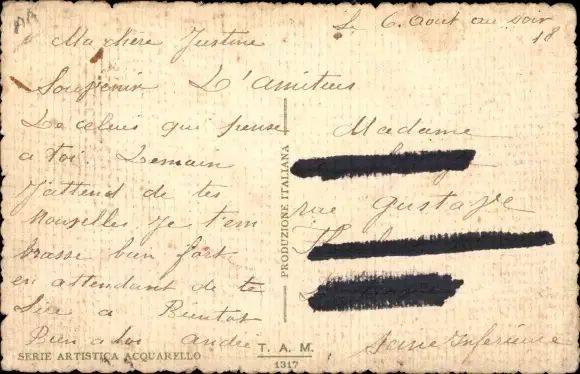 L 6. Aout au soir
18
Ma chere Justine
Souvenir L'amities
De celui qui pense
a toi. Demain
J'attend de tes
Nouvelles. Je t'em
brasse bien fort
en attendant de te
Lire a Bientot
Bien a toi andre
Madame
rue Gustave
Seine Inferieure
PRODUZIONE ITALIANA
SERIE ARTISTICA ACQUARELLO
T. A. M.
1317